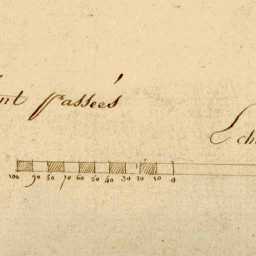 passées
Ech
100 90 80 70 60 50 40 30 20 10 0